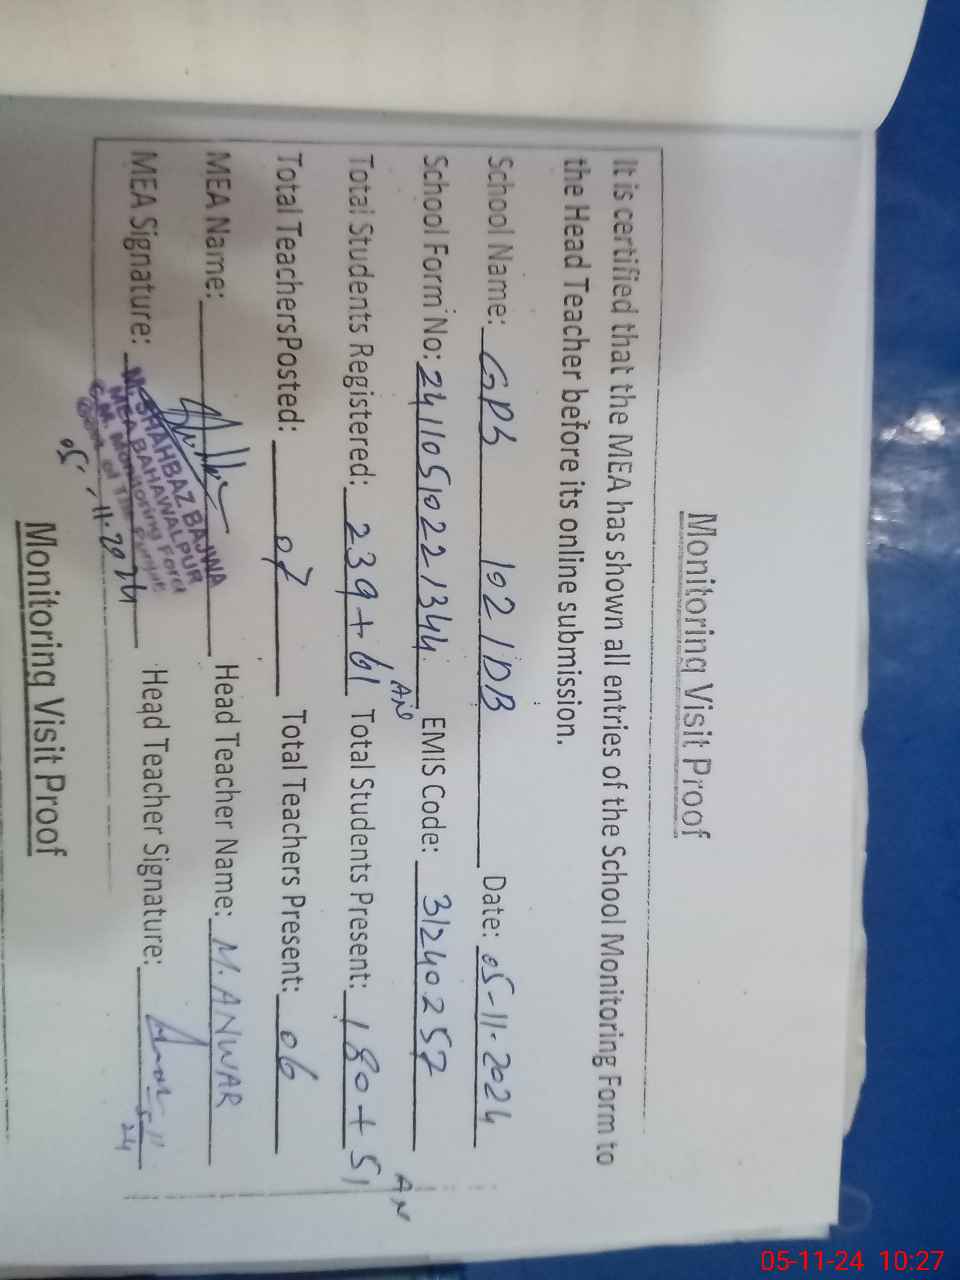 Monitoring Visit Proof
It is certified that the MEA has shown all entries of the School Monitoring Form to
the Head Teacher before its online submission.
School Name: GPS 102/DB Date: 05-11-2024
School Form No: 24110510221344 EMIS Code: 31240257
AN AN
Total Students Registered: 239+61 Total Students Present: 180+51
Total TeachersPosted: 07 Total Teachers Present: 06
MEA Name: Head Teacher Name: M. ANWAR
MEA Signature: Head Teacher Signature:
M. SHAHBAZ BAJWA
MEA BAHAWALPUR
C.M. Monitoring Force
Govt of The Punjab
05-11-2024
5-11
24
Monitoring Visit Proof
05-11-24 10:27